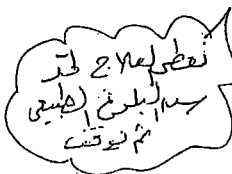 نعطي العلاج لحد
سن البلوغ الطبيعي
ثم نوقف